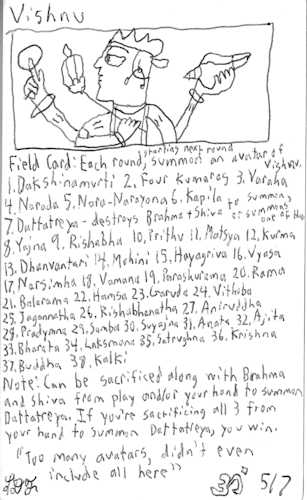 Vishnu
starting next round
Field Card: Each round, summon an avatar of Vishnu.
1. Dakshinamurti 2. Four Kumaras 3. Varaha
4. Narada 5. Nara-Narayana 6. Kapila
7. Dattatreya - destroys Brahma + Shiva to summon, or summon one of the
8. Yajna 9. Rishabha 10. Prithu 11. Matsya 12. Kurma
13. Dhanvantari 14. Mohini 15. Hayagriva 16. Vyasa
17. Narsimha 18. Vamana 19. Parashurama 20. Rama
21. Balarama 22. Hamsa 23. Garuda 24. Vithoba
25. Jagannatha 26. Rishabhanatha 27. Aniruddha
28. Pradymna 29. Samba 30. Suyajna 31. Anata 32. Ajita
33. Bharata 34. Laksmana 35. Satrughna 36. Krishna
37. Buddha 38. Kalki
Note: Can be sacrificed along with Brahma
and Shiva from play and/or your hand to summon
Dattatreya. If you're sacrificing all 3 from
your hand to summon Dattatreya, you win.
"Too many avatars, didn't even
include all here"
5/7